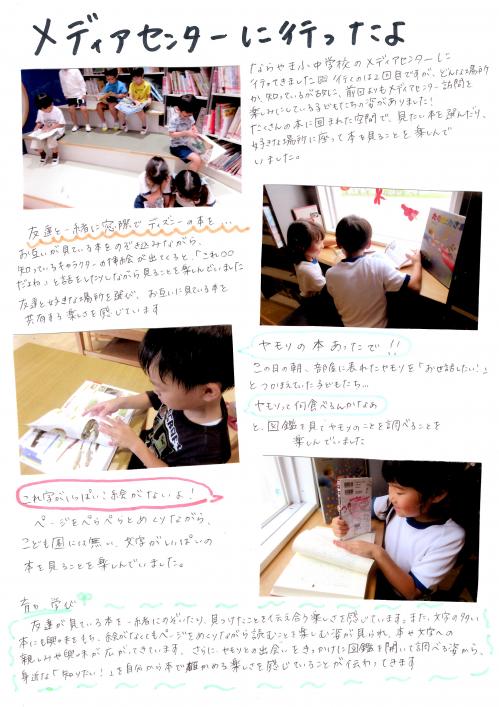 メディアセンターに行ったよ
ならやま小中学校のメディアセンターに
行ってきました 行くのは2回目ですが、どんな場所
か、知っているが故に、前回よりもメディアセンター訪問を
楽しみにしている子どもたちの姿がありました!
たくさんの本に囲まれた空間で、見たい本を選んだり、
好きな場所に座って本を見ることを楽しんで
いました。
友達と一緒に窓際でディズニーの本を...
お互いが見ている本をのぞき込みながら、
知っているキャラクターの挿絵が出てくると、「これ〇〇
だよね」と話をしたりしながら見ることを楽しんでいました
友達と好きな場所を選び、お互いに見ている本を
共有する楽しさを感じています
ヤモリの本あったで!!
この日の朝、部屋に表れたヤモリを「お世話したい!」
とつかまえていた子どもたち...
ヤモリって何食べるんかなぁ
と、図鑑を見てヤモリのことを調べることを
楽しんでいました
これ字がいっぱい!絵がないよ!
ページをぺらぺらとめくりながら、
こども園には無い、文字がいっぱいの
本を見ることを楽しんでいました。
育ち 学び
友達が見ている本を一緒にのぞいたり、見つけたことを伝え合う楽しさを感じています。また、文字の多い
本にも興味をもち、絵がなくてもページをめくりながら読むことを楽しむ姿が見られ、本や文字への
親しみや興味が広がってきています。さらに、ヤモリとの出会いをきっかけに図鑑を開いて調べる姿から、
身近な「知りたい!」を自分から本で確かめる楽しさを感じていることが伝わってきます